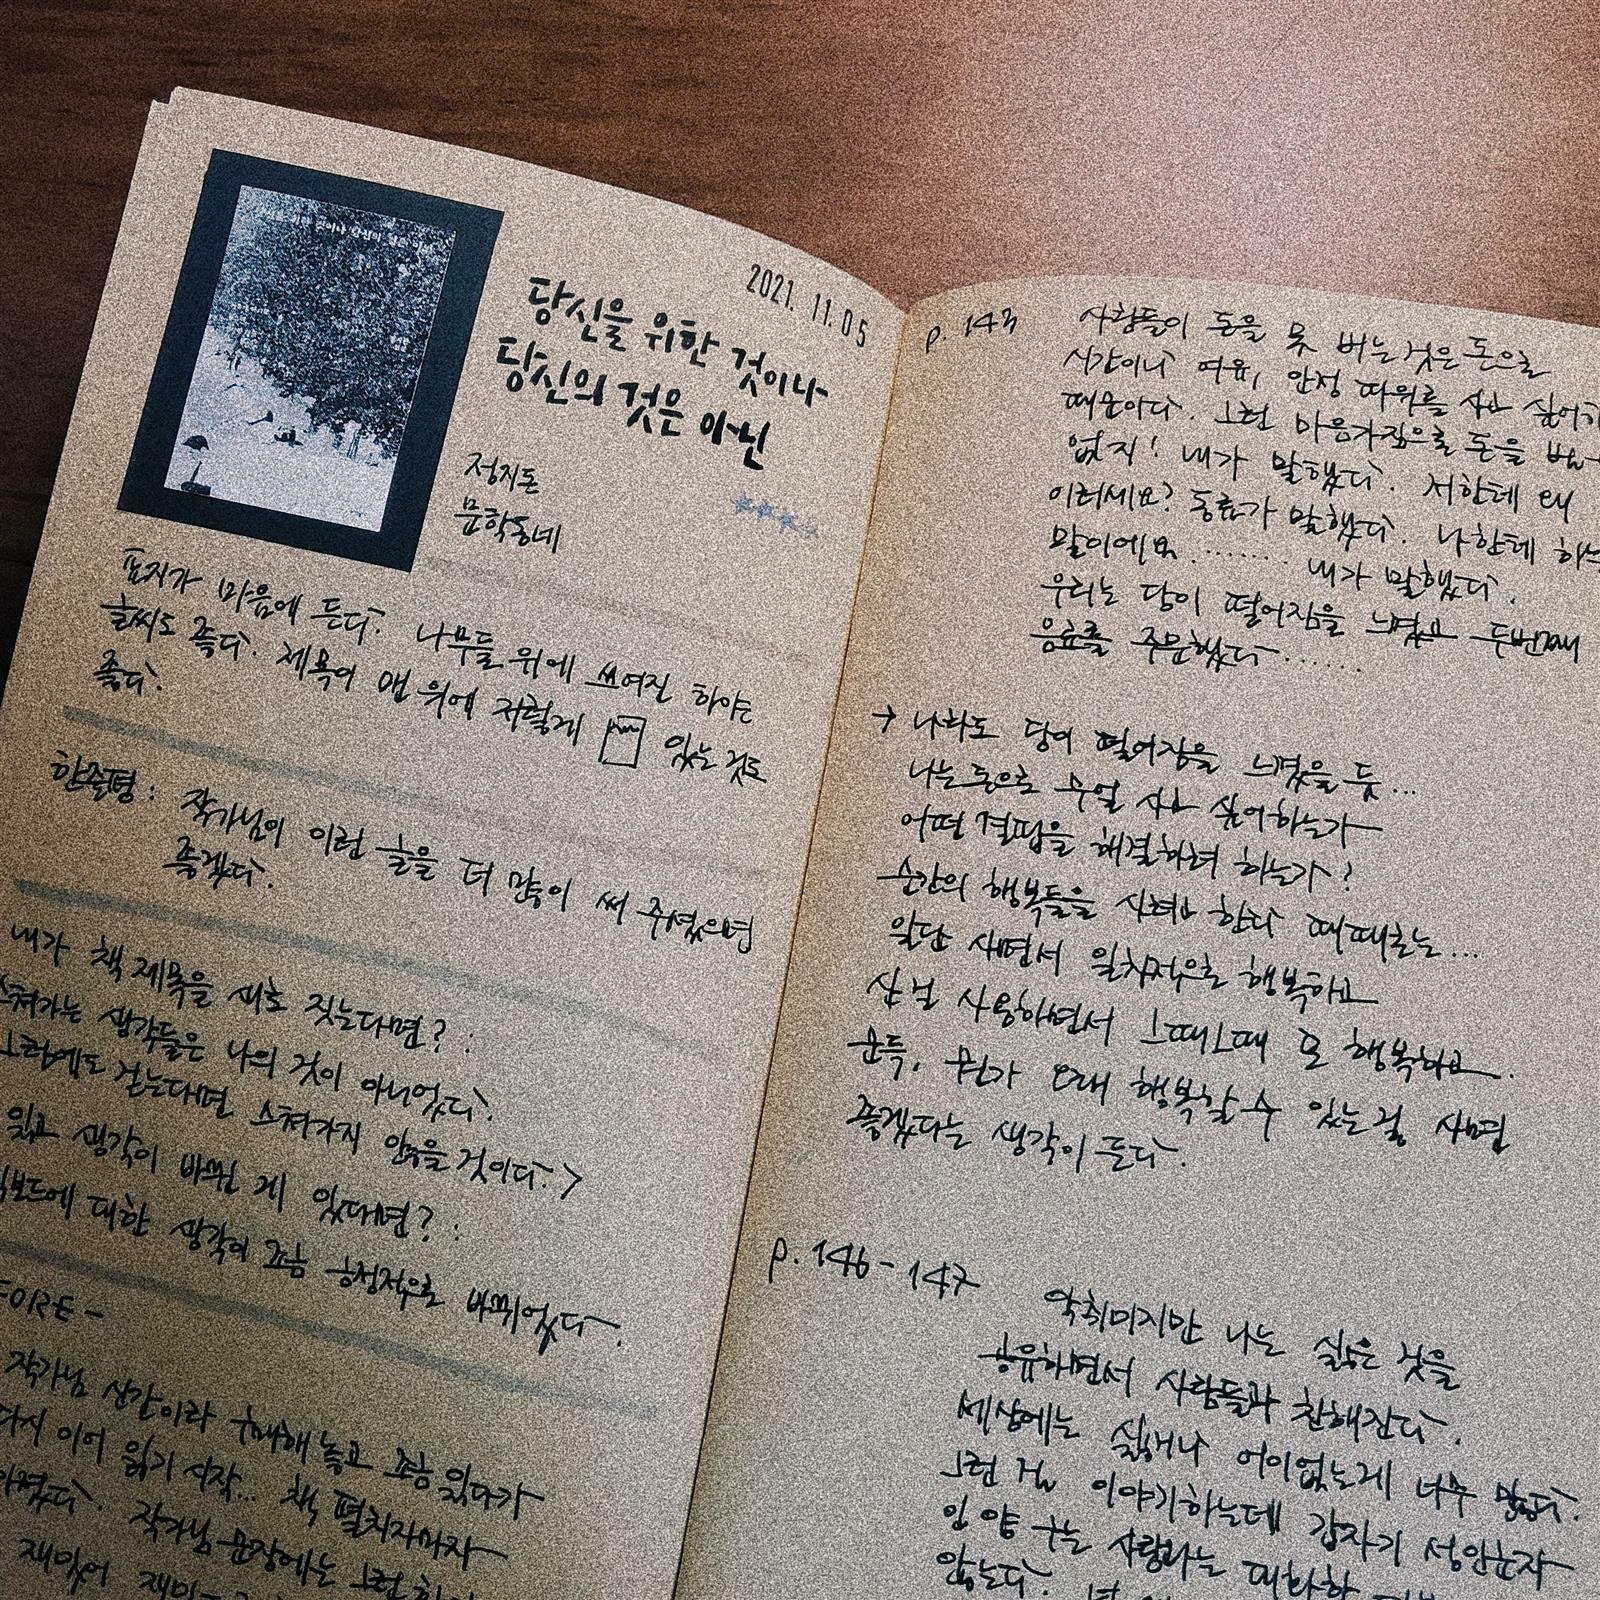 2021. 11. 05
당신을 위한 것이나
당신의 것은 아닌
정지돈
문학동네
표지가 마음에 든다. 나무들 위에 쓰여진 하얀
글씨도 좋다. 제목이 맨 위에 저렇게 있는 것도
좋다.
한줄평: 작가님이 이런 글을 더 많이 써 주셨으면
좋겠다.
내가 책 제목을 새로 짓는다면? :
스쳐가는 생각들은 나의 것이 아니었다.
그럼에도 걷는다면 스쳐가지 않을 것이다. >
읽고 생각이 바뀐 게 있다면? :
대한 생각이 조금 긍정적으로 바뀌었다.
작가님 신간이라 구매해 놓고 조금 읽다가
다시 이어 읽기 시작... 책 펼치자마자
작가님 문장에는 그런
재밌어
p. 143 사람들이 돈을 못 버는 것은 돈으로
시간이나 여유, 안정 따위를 사고 싶어하기
때문이다. 그런 마음가짐으로 돈을 벌
없지! 내가 말했다. 저한테 왜
이러세요? 동료가 말했다. 나한테 하는
말이에요....... 내가 말했다.
우리는 당이 떨어짐을 느꼈고 두번째
음료를 주문했다.......
→ 나라도 당이 떨어짐을 느꼈을 듯...
나는 돈으로 무얼 사고 싶어하는가
어떤 결핍을 해결하려 하는가?
순간의 행복들을 사려고 한다 때때로는...
일단 사면서 일차적으로 행복하고
산 걸 사용하면서 그때그때 또 행복하고.
문득, 뭔가 오래 행복할 수 있는 걸 사면
좋겠다는 생각이 든다.
p. 146-147 악취미지만 나는 싫은 것을
공유하면서 사람들과 친해진다.
세상에는 싫거나 어이없는게 너무 많다.
그런 걸 이야기하는데 갑자기 성인군자
인 양 구는 사람과는 대화할
않는다.